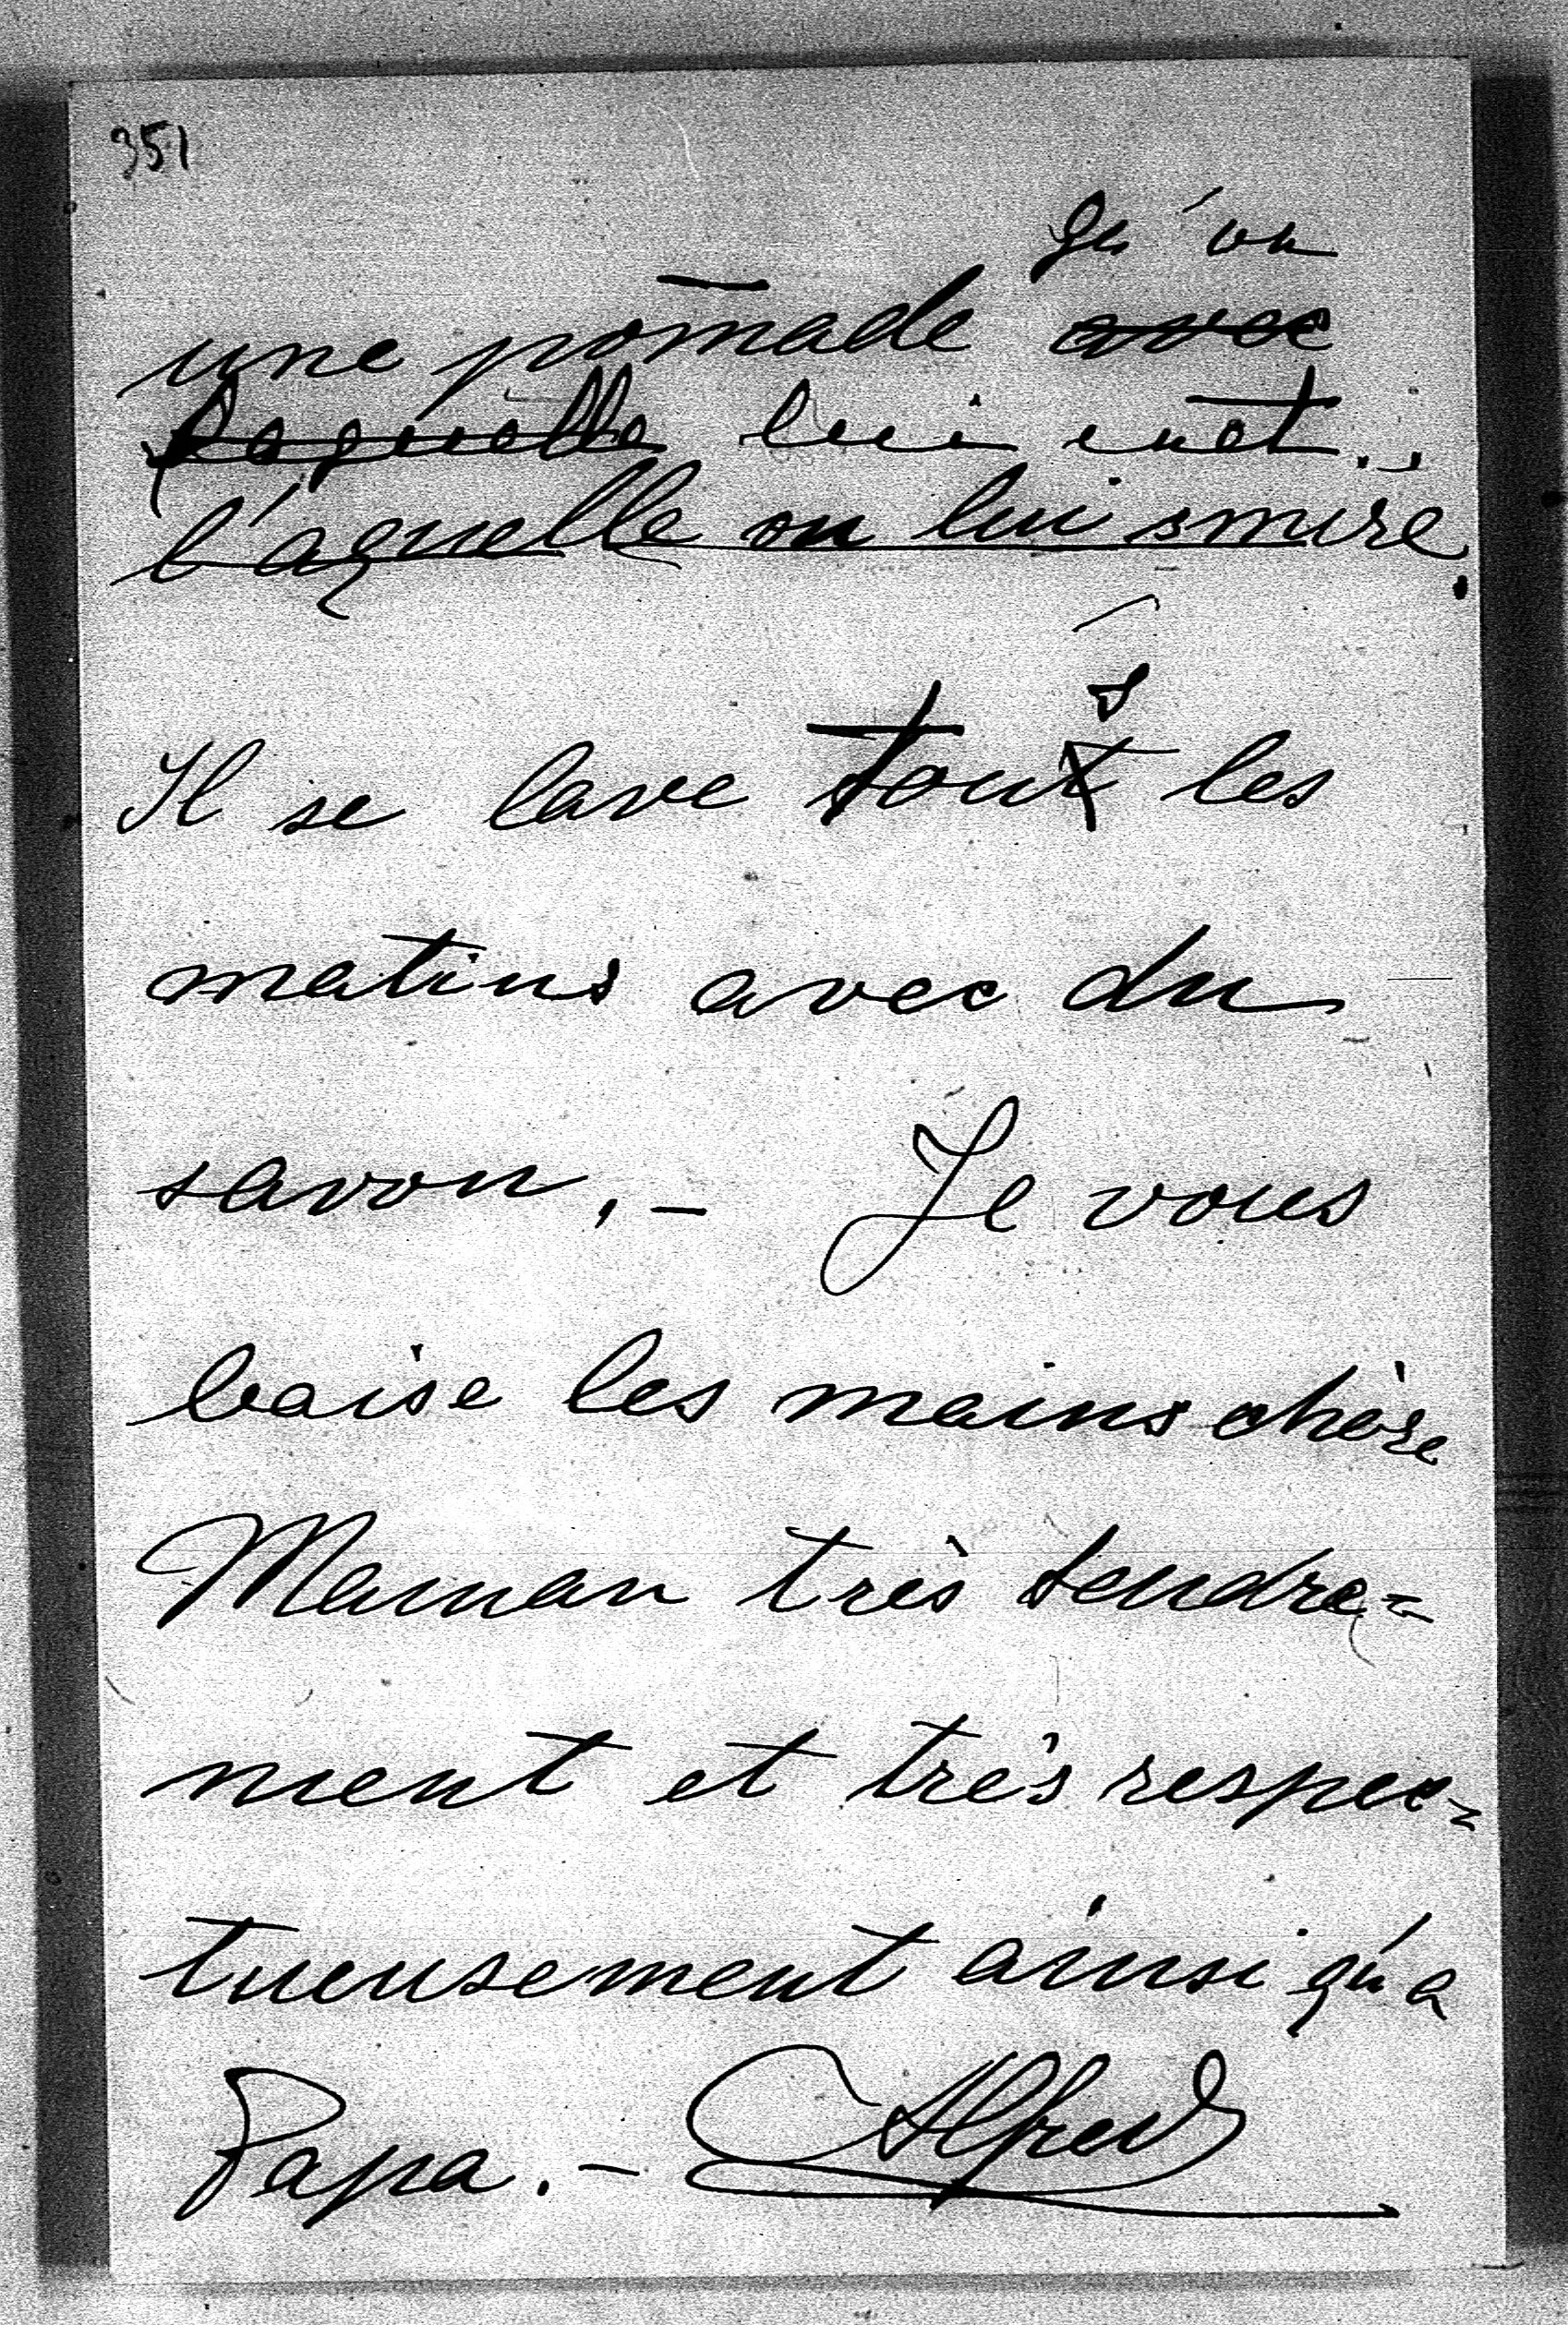 351
qu'on
une pommade avec
laquelle lui met.
l'aquelle on lui
Il se lave tout s les
matins avec du
savon. – Je vous
baise les mains chère
Maman très tendre=
ment et très respec=
tueusement ainsi qu'a
Papa. – Alfred